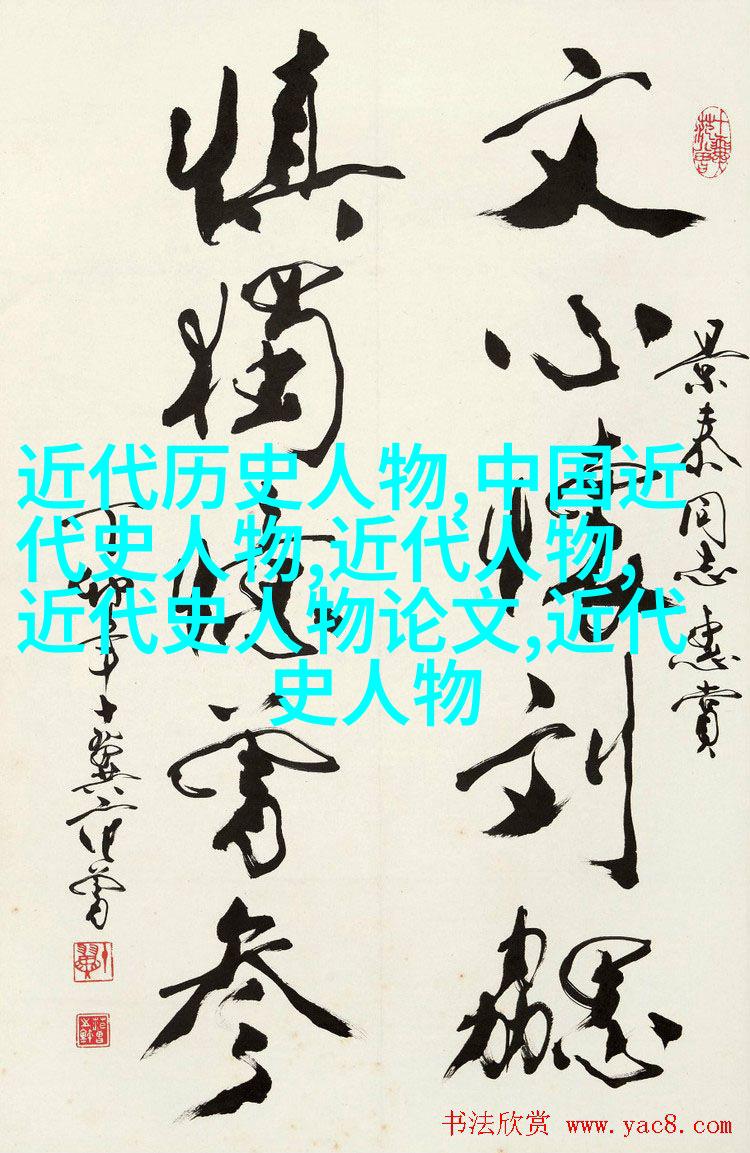 景泰同志惠賞
文心刘勰
慎獨曾参
丁卯年十翼范曾
近代历史人物,中国近
代史人物,近代人物,
近代史人物论文,近代
史人物
书法欣赏 www.yac8.com